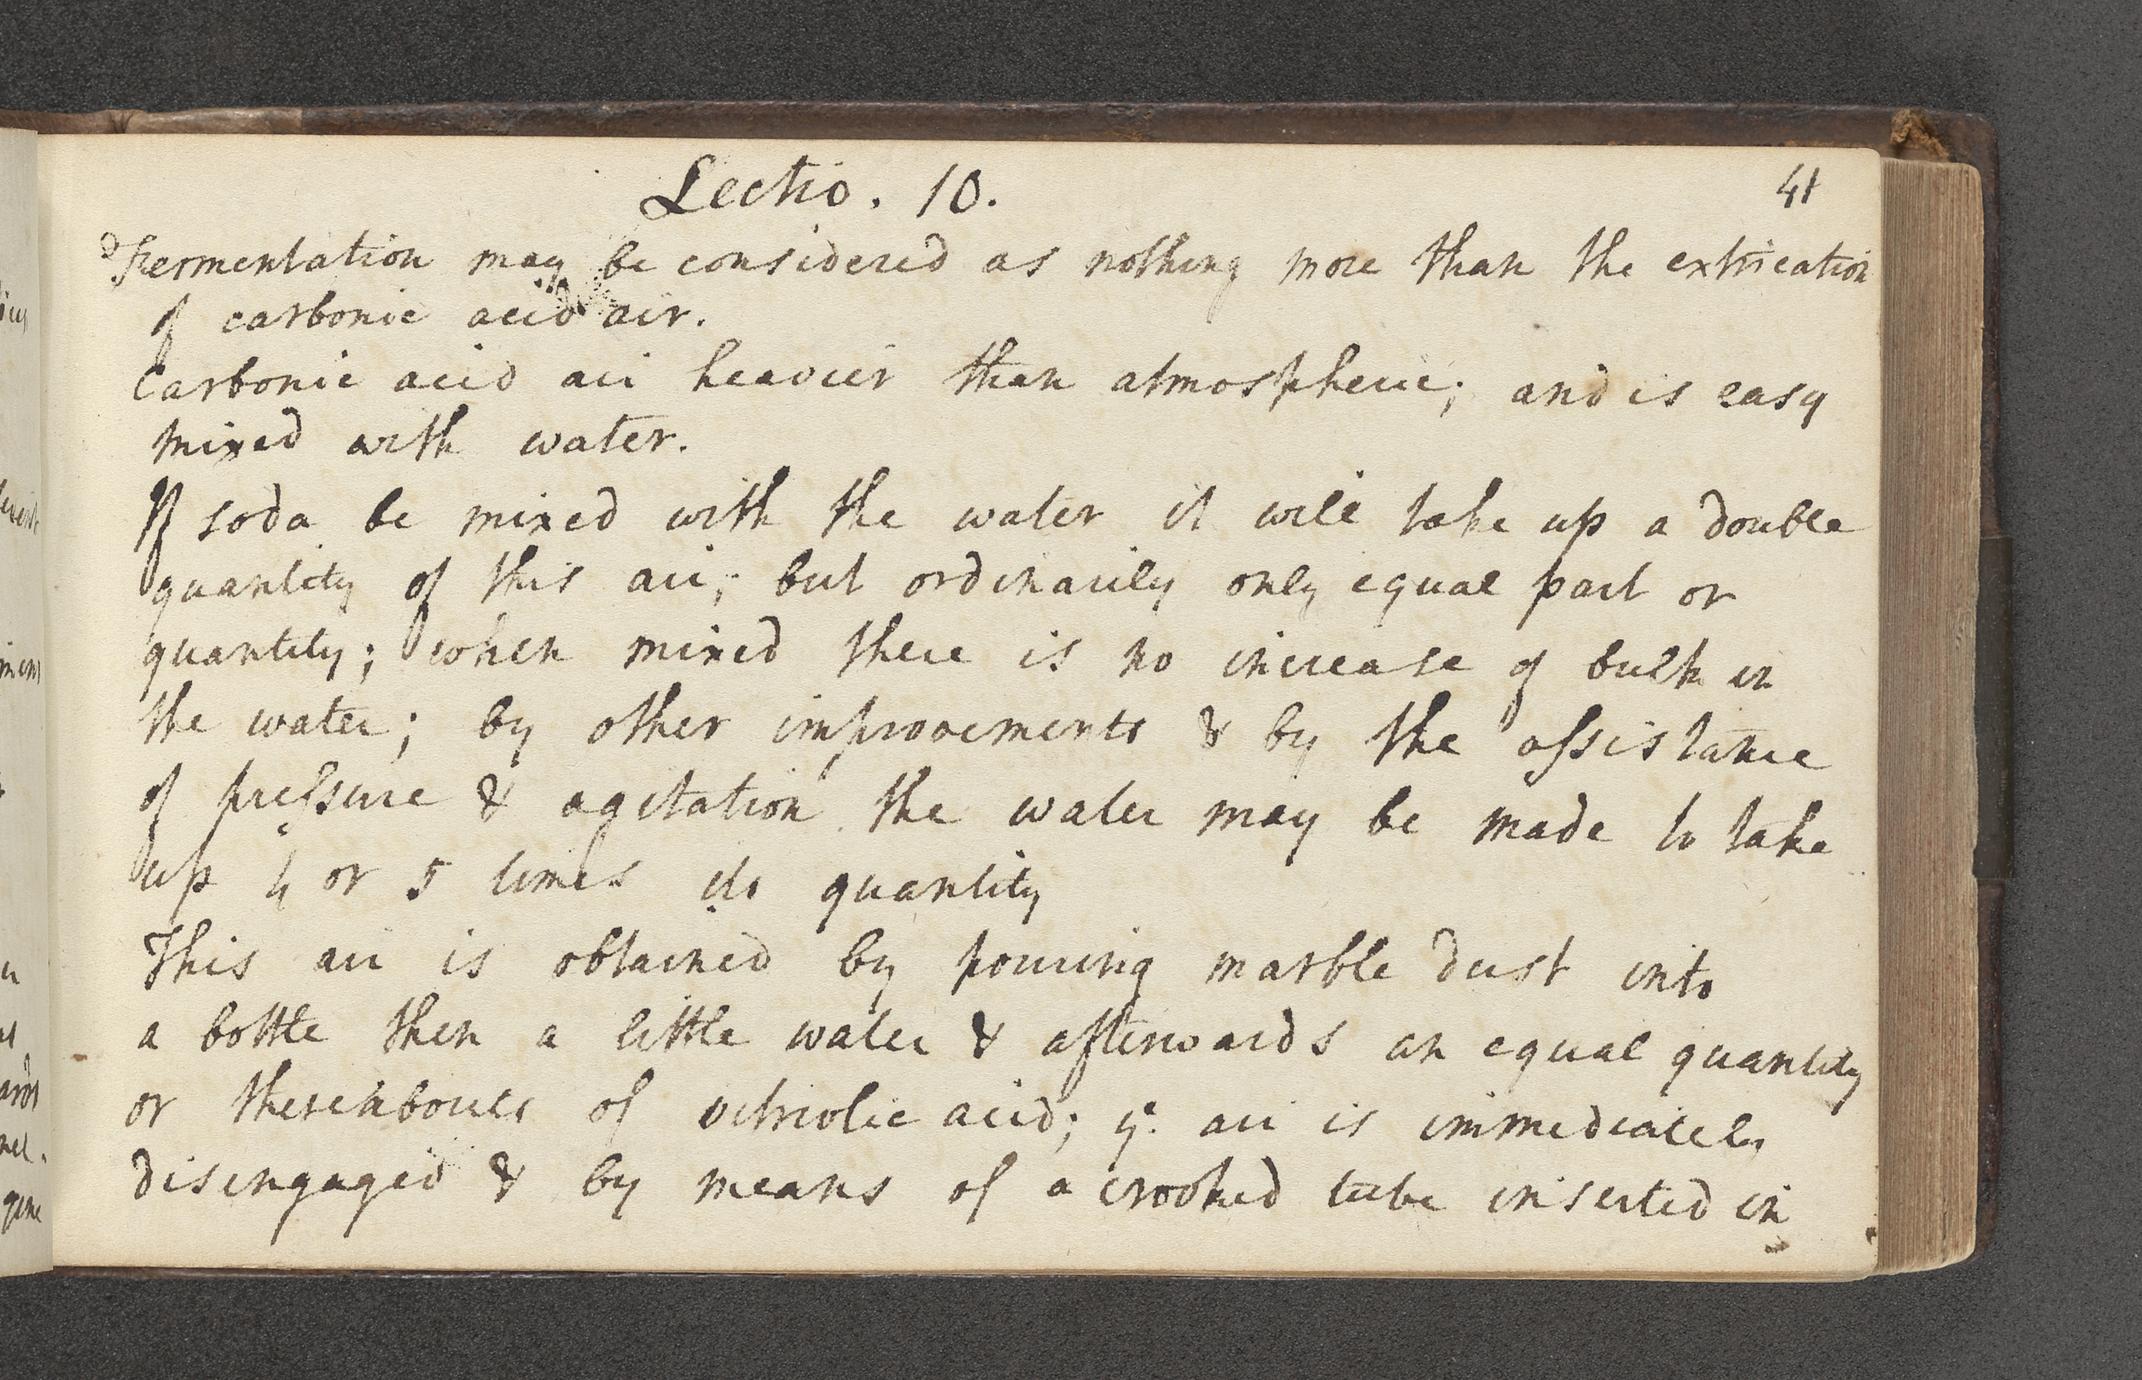 Lectio. 10.
41
Fermentation may be considered as nothing more than the extrication
of carbonic acid air.
Carbonic acid air heavier than atmospheric; and is easy
mixed with water.
If soda be mixed with the water it will take up a double
quantity of this air; but ordinarily only equal part or
quantity; when mixed there is no increase of bulk in
the water; by other improvements & by the assistance
of pressure & agitation the water may be made to take
up 4 or 5 times its quantity
This air is obtained by pouring marble dust into
a bottle then a little water & afterwards an equal quantity
or thereabouts of vitriolic acid; ye. air is immediately
disengaged & by means of a crooked tube inserted in